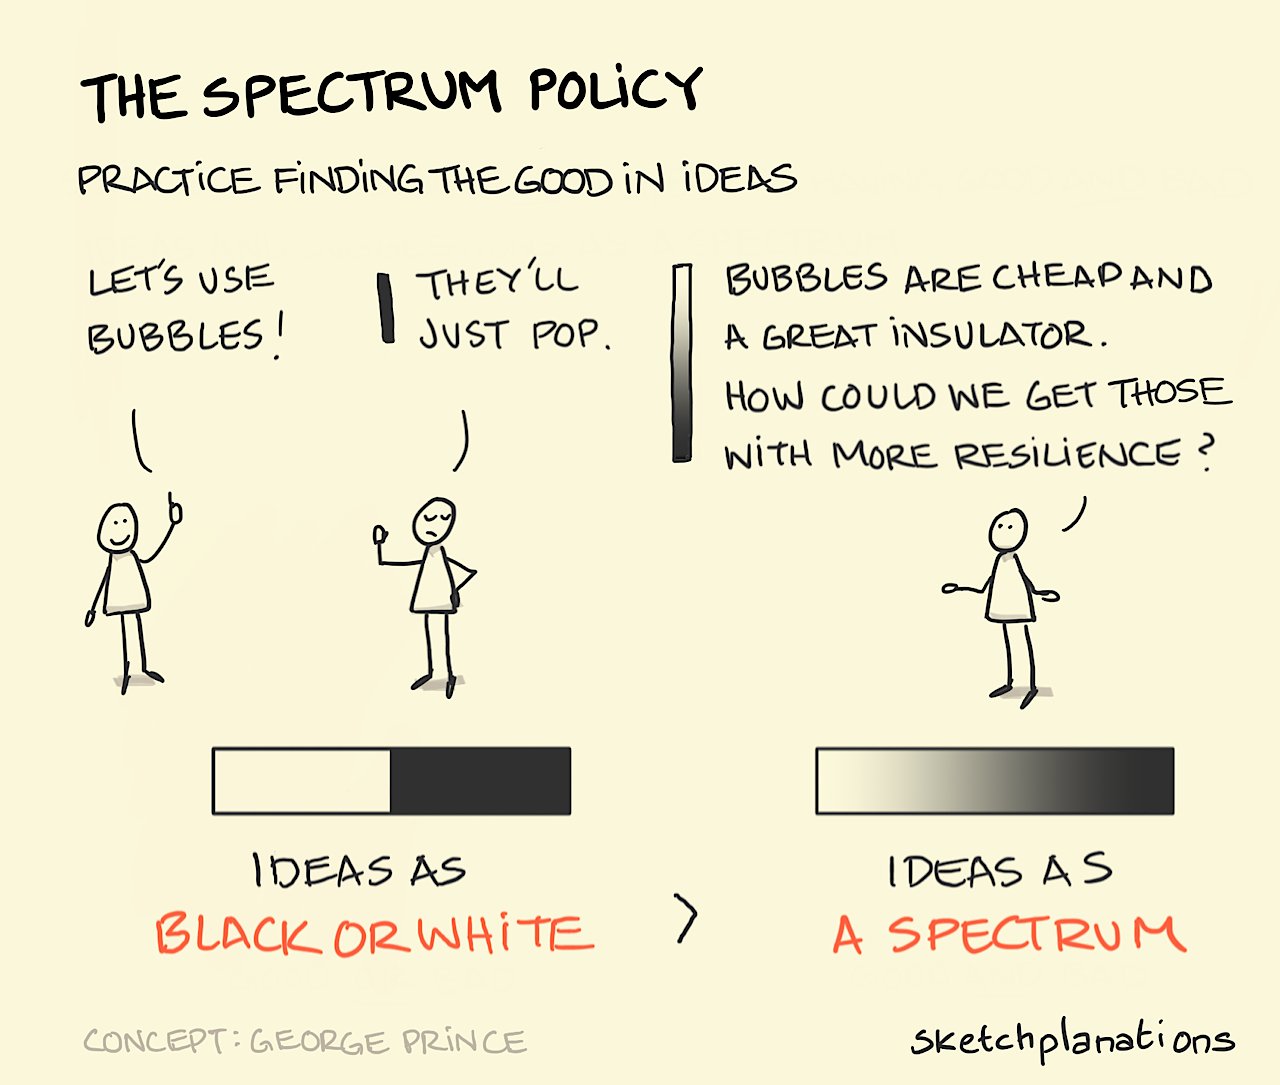 THE SPECTRUM POLiCY
PRACTiCE FiNDiNG THE GOOD iN iDEAS
LET'S USE
BUBBLES!
THEY'LL
JUST POP.
BUBBLES ARE CHEAP AND
A GREAT iNSULATOR.
HOW COULD WE GET THOSE
WiTH MORE RESiLiENCE?
IDEAS AS
BLACK OR WHiTE
>
IDEAS AS
A SPECTRUM
CONCEPT: GEORGE PRiNCE
sketchplanations